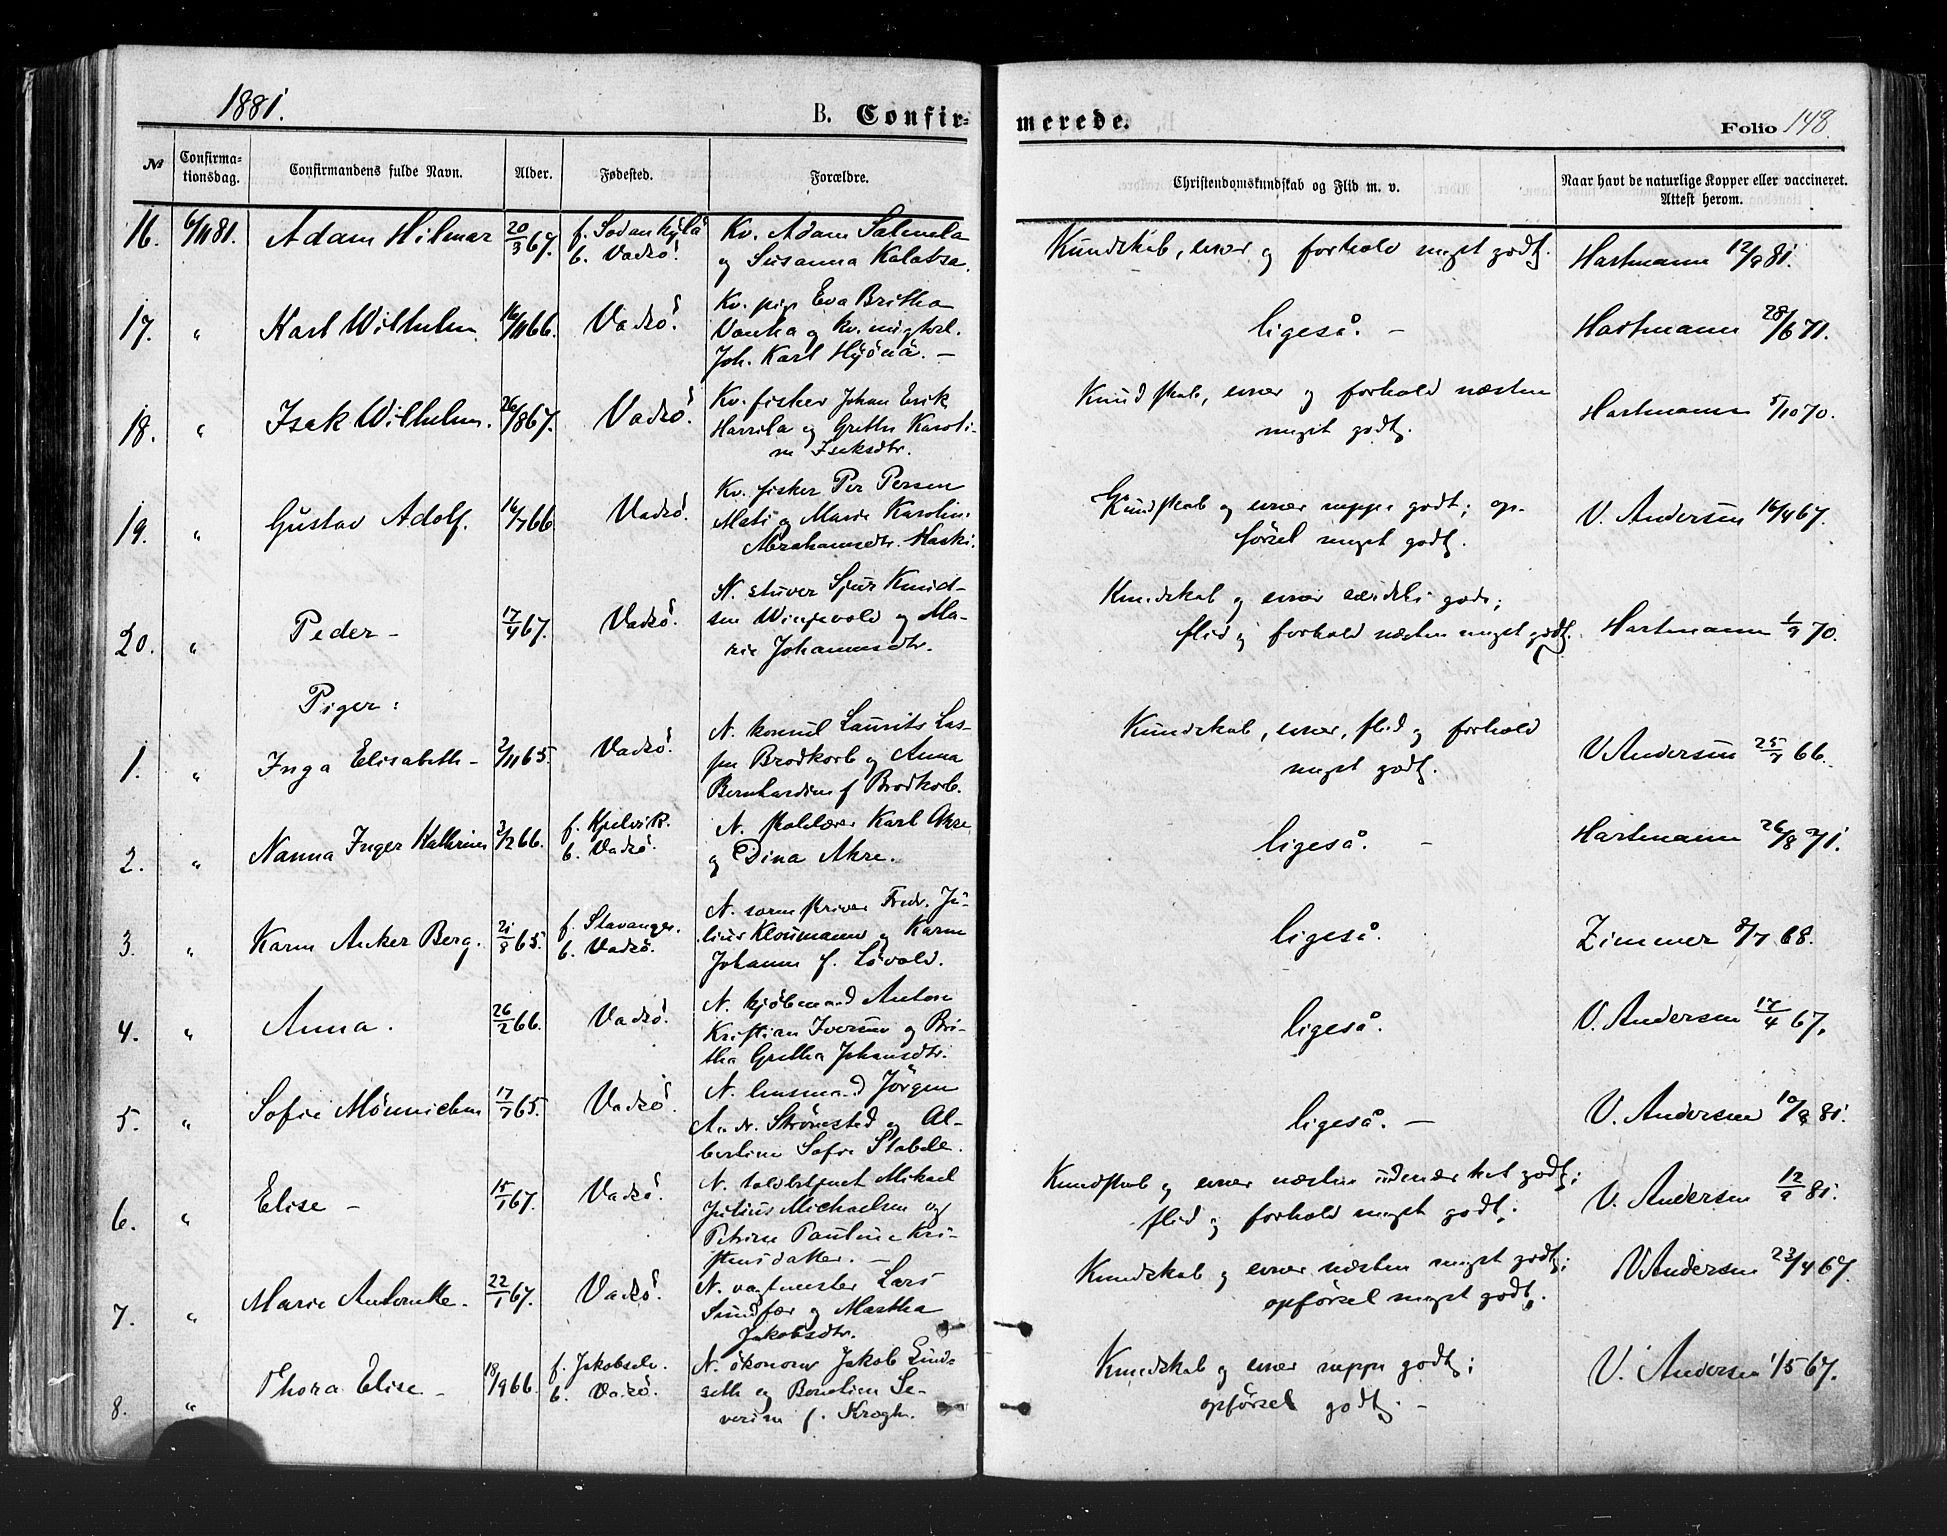 1881.
B. Confir-
merede.
Folio 148.
No
Confirma-
tionsdag.
Confirmandens fulde Navn.
Alder.
Fødested.
Forældre.
Christendomskundskab og Flid m. v.
Naar havt de naturlige Kopper eller vaccineret.
Attest herom.
16. 6/11 81. Adam Hilmar 20/3 67. f. Sodankylä
b. Vadsö.
Kv. Adam Salmela
og Susanna Kalabsa.
Kundskab, evner og forhold meget godt.
Hartmann 12/9 81.
17. " Karl Wilhelm. 16/11 66. Vadsö.
Kv. pige Eva Britha
Vanha og kv.
Joh. Karl Hyönä. –
ligeså. –
Hartmann 28/6 71.
18. " Isak Wilhelm. 26/8 67. Vadsö.
Kv. fisker Johan Erik
Harrila og Grethe Karoli-
ne Isaksdtr.
Kundskab, evner og forhold næsten
meget godt.
Hartmann 5/10 70.
19. " Gustav Adolf. 16/7 66. Vadsö.
Kv. fisker Per Persen
Mati og Marie Karolin
Abrahamsdtr. Haski.
Kundskab og evner neppe godt; op-
førsel meget godt.
V. Andersen 16/4 67.
20. " Peder – 17/4 67. Vadsö.
N. stuver Sjur Knud-
sen Winjevold og Ma-
rie Johannesdtr.
Kundskab og evner særdeles gode;
flid og forhold næsten meget godt.
Hartmann 1/9 70.
Piger:
1. " Inga Elisabeth – 2/11 65. Vadsö.
N. konsul Laurits Las-
sen Brodkorb og Anna
Bernhardine f. Brodkorb.
Kundskab, evner, flid og forhold
meget godt.
V. Andersen 25/7 66.
2. " Nanna Inger Kathrine 2/2 66. f. Kjelvik.
b. Vadsö.
N. skolelærer Karl Akre
og Dina Akre.
ligeså. –
Hartmann 26/8 71.
3. " Karen Anker Berg. 21/8 65. f. Stavanger.
b. Vadsö.
N. sorenskriver Fredr. Ju-
lius Kloumann og Karen
Johanne f. Lövold.
ligeså.
Zimmer 8/7 68.
4. " Anna. 26/2 66. Vadsö.
N. kjöbmand Anton
Kristian Iversen og Bri-
tha Gretha Johansdtr.
ligeså.
V. Andersen 17/4 67.
5. " Sofie Mönnichen 17/7 65. Vadsö.
N. lensmand Jörgen
Andr. Strömsted og Al-
bertine Sofie Stabell.
ligeså. –
V. Andersen 10/9 81.
6. " Elise – 15/1 67. Vadsö.
N. toldbetjent Mikael
Julius Michaelsen og
Petrine Pauline Kri-
stensdatter. –
Kundskab og evner næsten udmærket godt;
flid og forhold meget godt.
V. Andersen 12/9 81.
7. " Marie Antonette. 22/1 67. Vadsö.
N. vagtmester Lars
Sundfær og Martha
Jakobsdtr.
Kundskab og evner næsten meget godt;
opførsel meget godt.
V. Andersen 23/4 67.
8. " Thora Elise – 18/9 66. f. Jakobselv.
b. Vadsö.
N. ökonom Jakob Lind-
seth og Bendine Se-
verine f. Krogh.
Kundskab og evner neppe godt;
opførsel godt. –
V. Andersen 1/5 67.